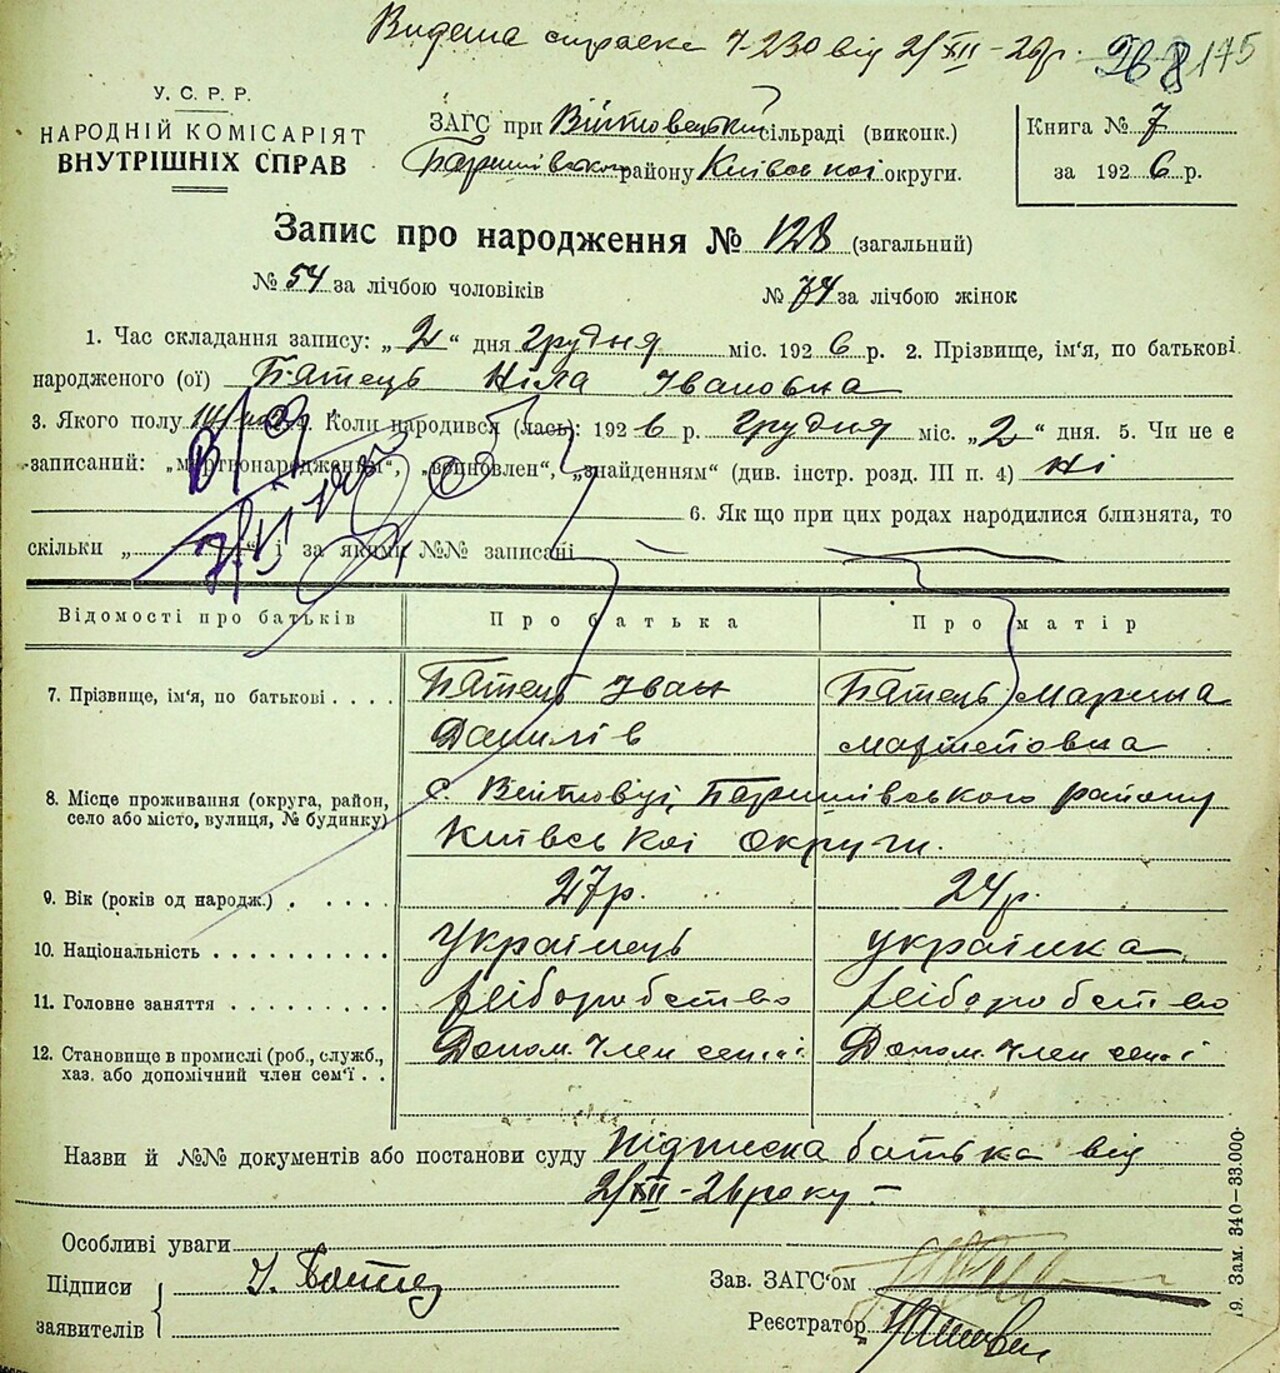 Видана справка 7-230 від 2/XII-26р. 175
У. С. Р. Р.
НАРОДНІЙ КОМІСАРІЯТ
ВНУТРІШНІХ СПРАВ
ЗАГС при Війтовецький сільраді (виконк.)
Баришівського району Київської округи.
Книга № 7
за 1926 р.
Запис про народження № 128 (загальний)
№ 54 за лічбою чоловіків № 74 за лічбою жінок
1. Час складання запису: „2“ дня грудня міс. 1926 р. 2. Прізвище, ім'я, по батькові
народженого (ої) Бятець Ніла Івановна
3. Якого полу 4. Коли народився (лась): 1926 р. грудня міс. „2“ дня. 5. Чи не є
записаний: „мертвонародженим“, „знайденням“ (див. інстр. розд. III п. 4) Ні
6. Як що при цих родах народилися близнята, то
скільки „ “ і за якими №№ записані
Відомості про батьків Про батька Про матір
7. Прізвище, ім'я, по батькові . . . . Бятець Іван Бятець Марина
Данилів
8. Місце проживання (округа, район, село або місто, вулиця, № будинку) с. Війтовці, Баришівського району
Київської округи.
9. Вік (років од народж.) . . . . . 27р. 24р.
10. Національність . . . . . . . . . . Українець українка
11. Головне заняття . . . . . . . . . хліборобство хліборобство
12. Становище в промислі (роб., служб., хаз. або допомічний член сем'ї . . Допом. член семії Допом. член семії
Назви й №№ документів або постанови суду Підписка батька від
2/XII-26 року –
Особливі уваги
Підписи
заявителів
Зав. ЗАГС'ом
Реєстратор
19. Зам. 340—33.000